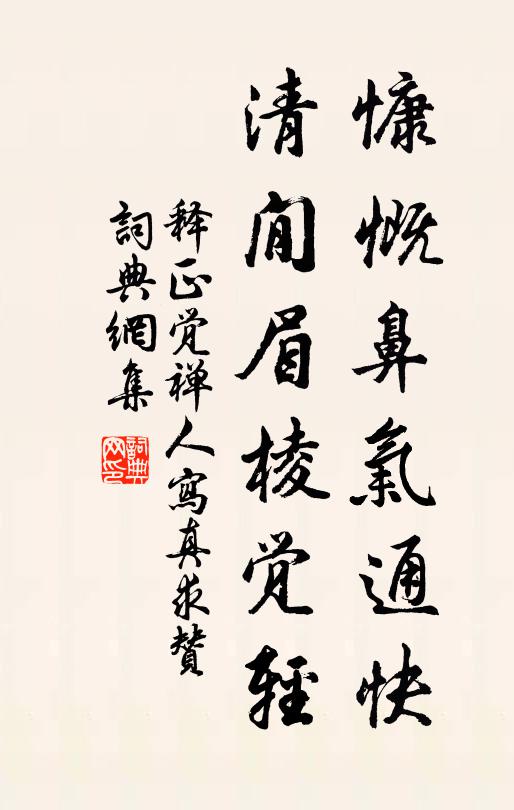 慷慨鼻氣通快
清間眉棱觉輕
释正觉禅人寫真求賛
詞典網集
詞典网印